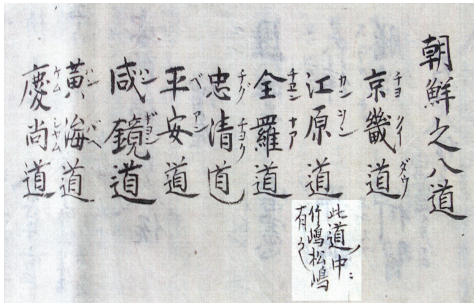 朝鮮之八道
京畿道
江原道
此道中ニ
竹嶋松嶋
有之
全羅道
忠清道
平安道
咸鏡道
黃海道
慶尚道